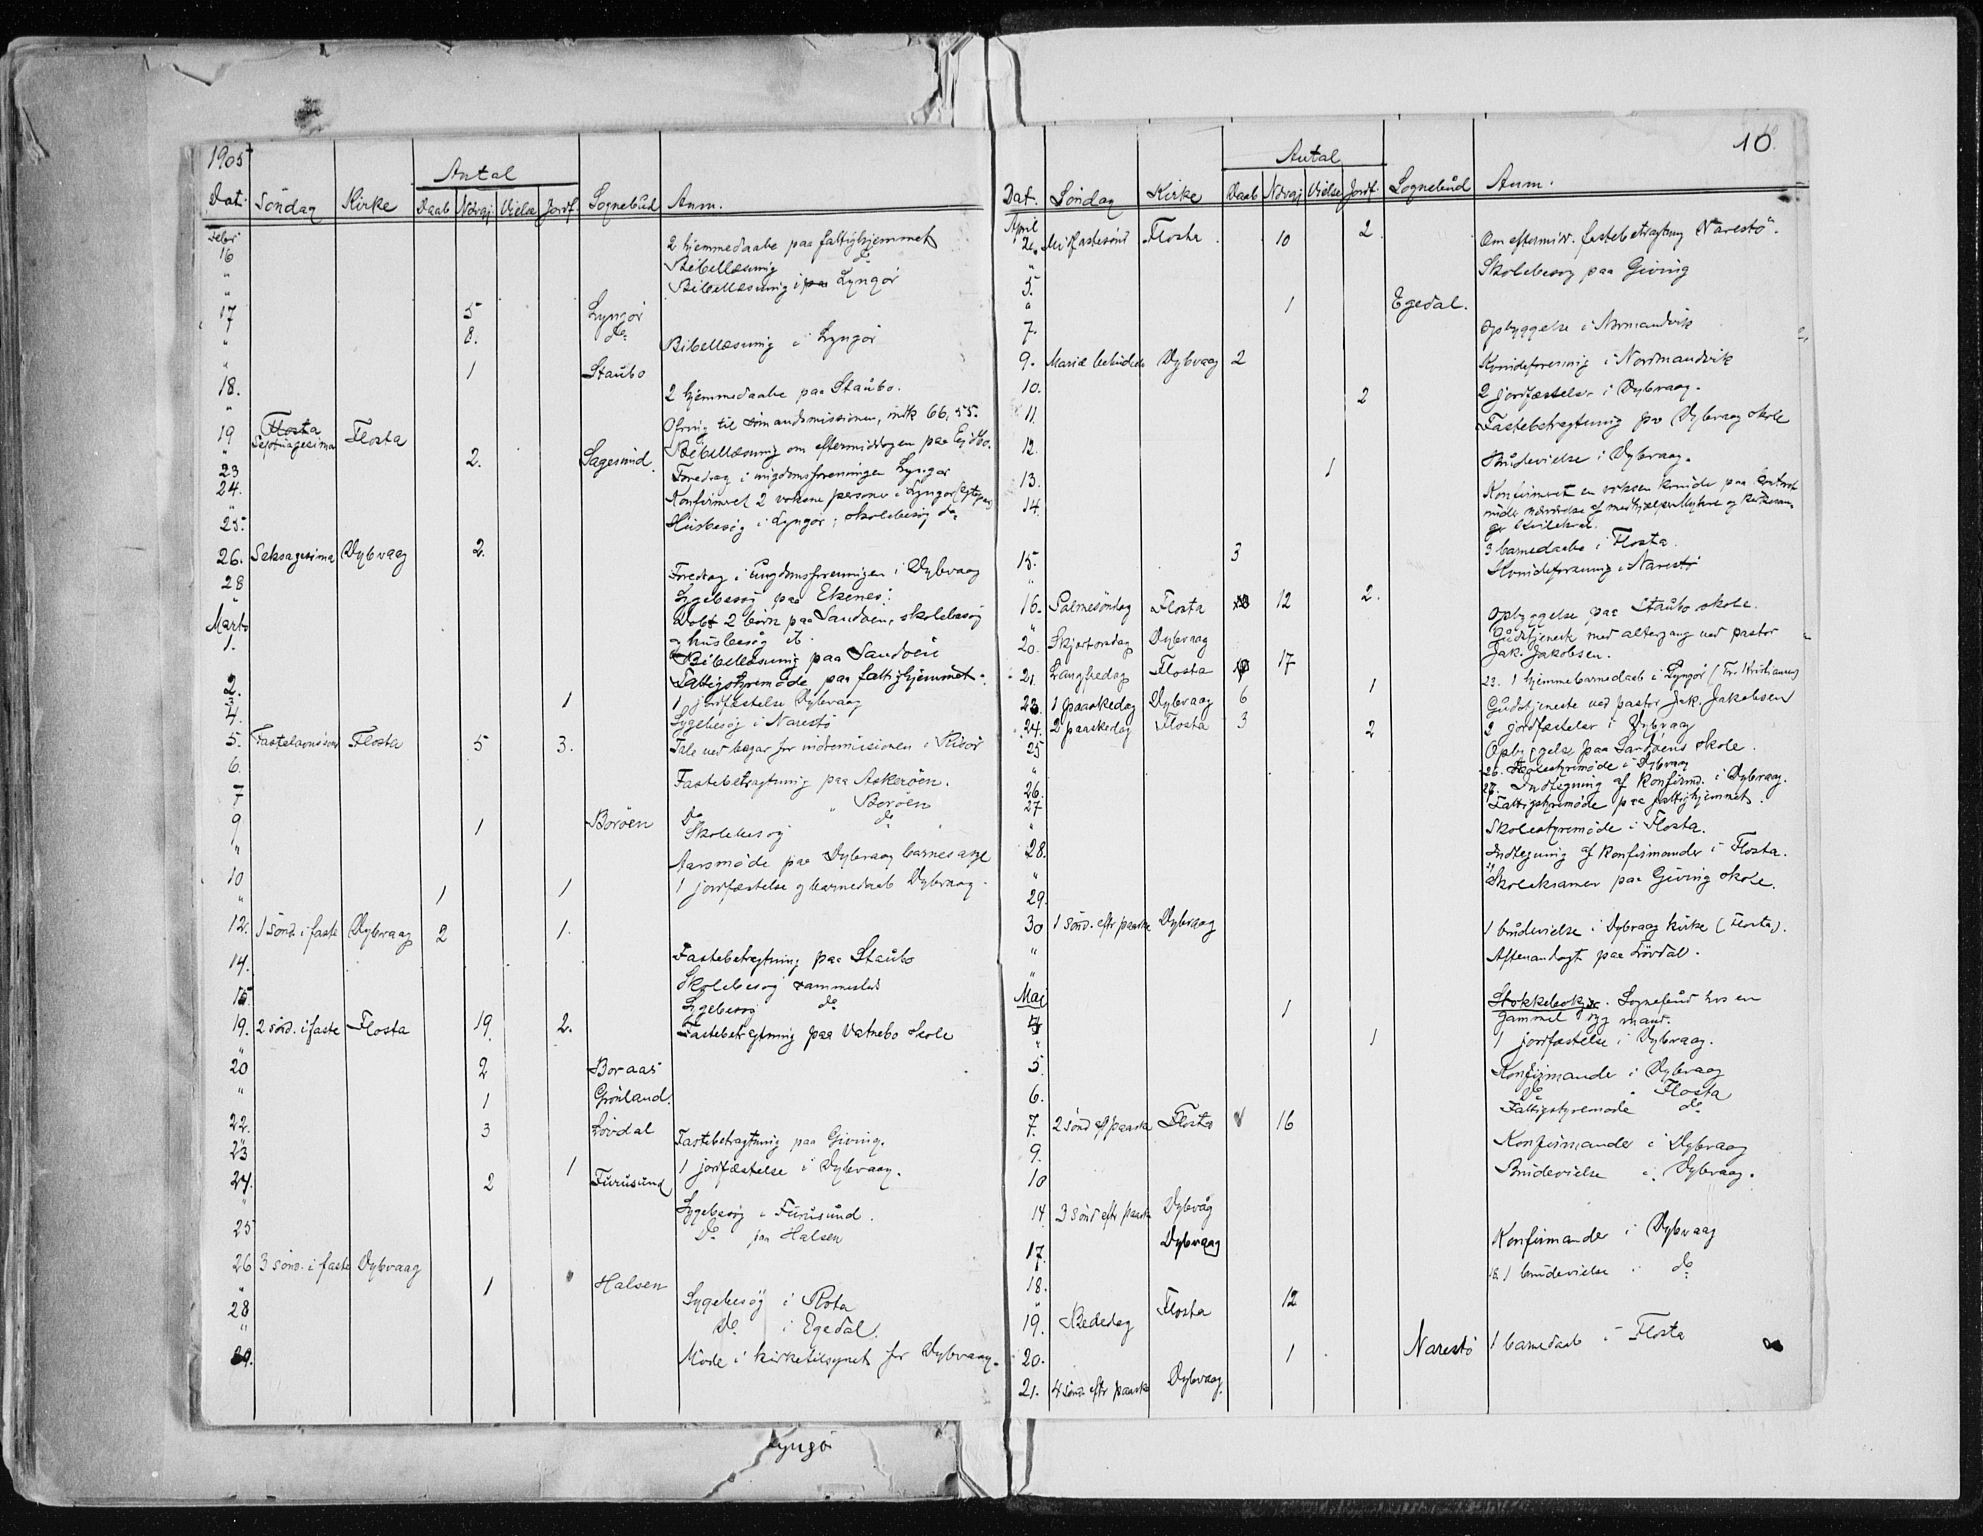 1905
Antal
Dat. Söndag Kirke Daab Ndvgj. Vielse Jordf. Sognebud Anm.
Febr
16 2 hjemmedaabe paa fattighjemmet
" Bibellæsning do
" Bibellæsning i paa Lyngör
17 5 Lyngör
" 8. do
" Bibellæsning i Lyngör
" 1 Staubo
18. 2 hjemmedaabe paa Staubo.
" Ofring til sömandsmissionen, indk 66,55.
19 Flosta Septuagesima Flosta
" 2. Sagesund Bibellæsning om eftermiddagen paa
23 Foredrag i ungdomsforeningen Lyngör
24. Konfirmeret 2 voksne personer i Lyngör
25. Husbesög i Lyngör; skolebesög do
26. Seksagesima Dybvaag 2.
28 Foredrag i ungdomsforeningen i Dybvaag
" Sygebesög paa Ekenes.
Marts Döbt 2 börn paa Sandöen, skolebesög
1. og husbesög
Bibellæsning paa Sandöen
2. Fattigstyremöde paa fattighjemmet.
3 1 1 jordfæstelse Dybvaag
4. Sygebesög i Narestö
5. Fastelavnssönd Flosta 5 3. Tale ved bazar for indremissionen i Risör
6. Fastebetragtning paa Askeröen.
7 Do " Boröen
9 1 Boröen Skolebesög do
" Aarsmöde paa Dybvaag barneasyl
10 1 1 1 jordfæstelse og barnedaab Dybvaag.
"
12. 1 sönd. i faste Dybvaag 2 1.
14. Fastebetragtning paa Staubo
15 Skolebesög sammested
Sygebesög do
19. 2 sönd. i faste Flosta 19. 2. Fastebetragtning paa Vatnebo skole
"
20 2 Boraas
" 1 Grönland.
22. 3 Lövdal
23 Fastebetragtning paa Giving.
24. 1 1 jordfæstelse i Dybvaag.
" 2 Furusund
25 Sygebesög i Furusund.
Do paa Halsen
26 3 sönd. i faste Dybvaag
" 1 Halsen
28 Sygebesög i Rota
" Do i Egedal.
29. Möde i kirketilsynet for Dybvaag.
Lyngö
10.
Antal
Dat. Söndag Kirke Daab Ndvgj. Vielse Jordf. Sognebud Anm.
April
2. Midfastesönd Flosta 10 2 Om eftermid. fastebetragtning Narestö.
" Skolebesög paa Giving
5.
" 1 Egedal.
7. Opbyggelse i Normandvik
9. Mariæ bebudelse Dybvaag 2 Kvindeforening i Normandvik
10. 2 2 jordfæstelser i Dybvaag.
11. Fastebetragtning paa Dybvaag skole
12. 1 Brudevielse i Dybvaag.
13. Konfirmeret en voksen kvinde paa
14. under nærværelse af medhjælper Myhre og kirkesan-
ger
15. 3 3 barnedaabe i Flosta.
" Kvindeforening i Narestö
16. Palmesöndag Flosta 12 2.
" Opbyggelse paa Staubo skole.
20. Skjærtorsdag Dybvaag Gudstjeneste med altergang ved pastor
Jak. Jakobsen.
21. Langfredag Flosta 17 1 23. 1 hjemmebarnedaab i Lyngör
23. 1 paaskedag Dybvaag 6 Gudstjeneste ved pastor Jak. Jakobsen
24. 2 paaskedag Flosta 3 2 2 jordfæstelser i Dybvaag
25 Opbyggelse paa Sandöens skole.
" 26. Skolestyremöde i Dybvaag
26. 27. Indtegning af konfirmd. i Dybvaag.
27 Fattigstyremöde paa fattighjemmet.
" Skolestyremöde i Flosta.
28. Indtegning af konfirmander i Flosta.
" Skoleksamen paa Giving skole.
29.
30 1 sönd. eftr paaske Dybvaag 1 brudevielse i Dybvaag kirke (Flosta).
" Aftenandagt paa Lövdal.
"
Mai 1 Sognebud hos en
4 gammel syg mand.
" 1 1 jordfæstelse i Dybvaag.
5. Konfirmander i Dybvaag
6. do " Flosta
Fattigstyremöde do
7. 2 sönd eft paaske Flosta 16
9. Konfirmander i Dybvaag
10 Brudevielse i Dybvaag.
14. 3 sönd eftr paaske Dybvåg
17. Dybvaag Konfirmander i Dybvaag
18. 18. 1 brudevielse " do
"
19. Bededag Flosta 12
20. 1 Narestö 1 barnedaab i Flosta
21. 4 sönd. eftr paaske Dybvaag.